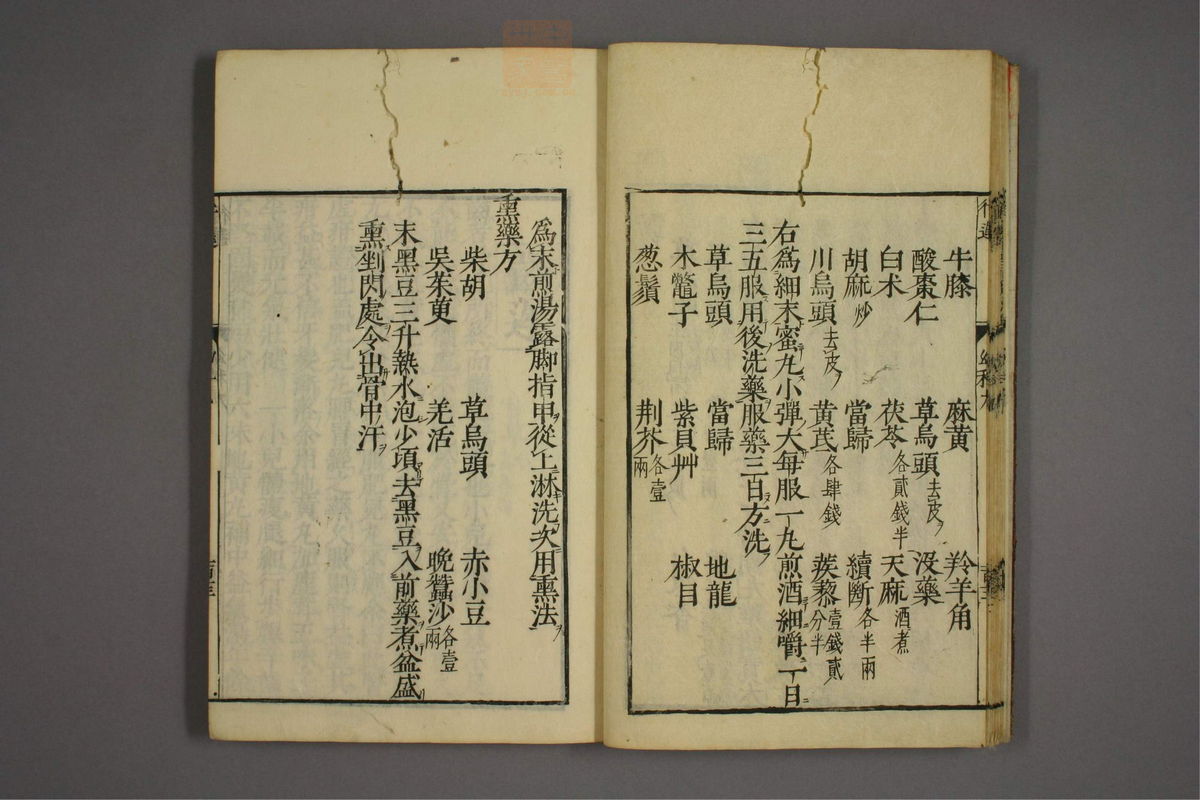 牛膝 麻黃 羚羊角
酸棗仁 草烏頭去皮 沒藥
白朮 茯苓各貳錢半 天麻酒煮
胡麻炒 當歸 續斷各半兩
川烏頭去皮 黃芪各肆錢 蒺藜壹錢貳分半
右爲細末蜜丸小彈大每服一丸煎酒細嚼一日
三五服用後洗藥服藥三百方洗
草烏頭 當歸 地龍
木鼈子 紫貝艸 椒目
葱鬚 荆芥各壹兩
爲末煎湯露脚指甲從上淋洗次用熏法
熏藥方
柴胡 草烏頭 赤小豆
吳茱萸 羌活 晩蠶沙各壹兩
末黑豆三升熱水泡少頃去黑豆入前藥煮盆盛
熏剉閃處令出骨中汗